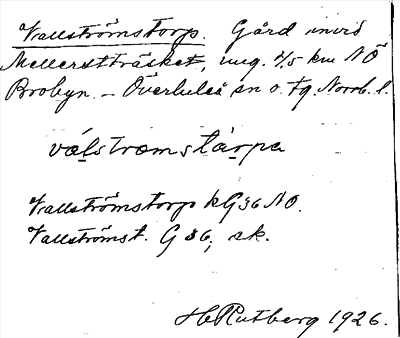 Vallströmstorp. Gård invid
Mellerstträsket, ung. 2,5 km NÖ
Brobyn. – Överluleå sn o. tg. Norrb. l.
válstromstàrpa
Vallströmstorp kG36 NO.
Vallströmst. G 36, sk.
H Rutberg 1926.